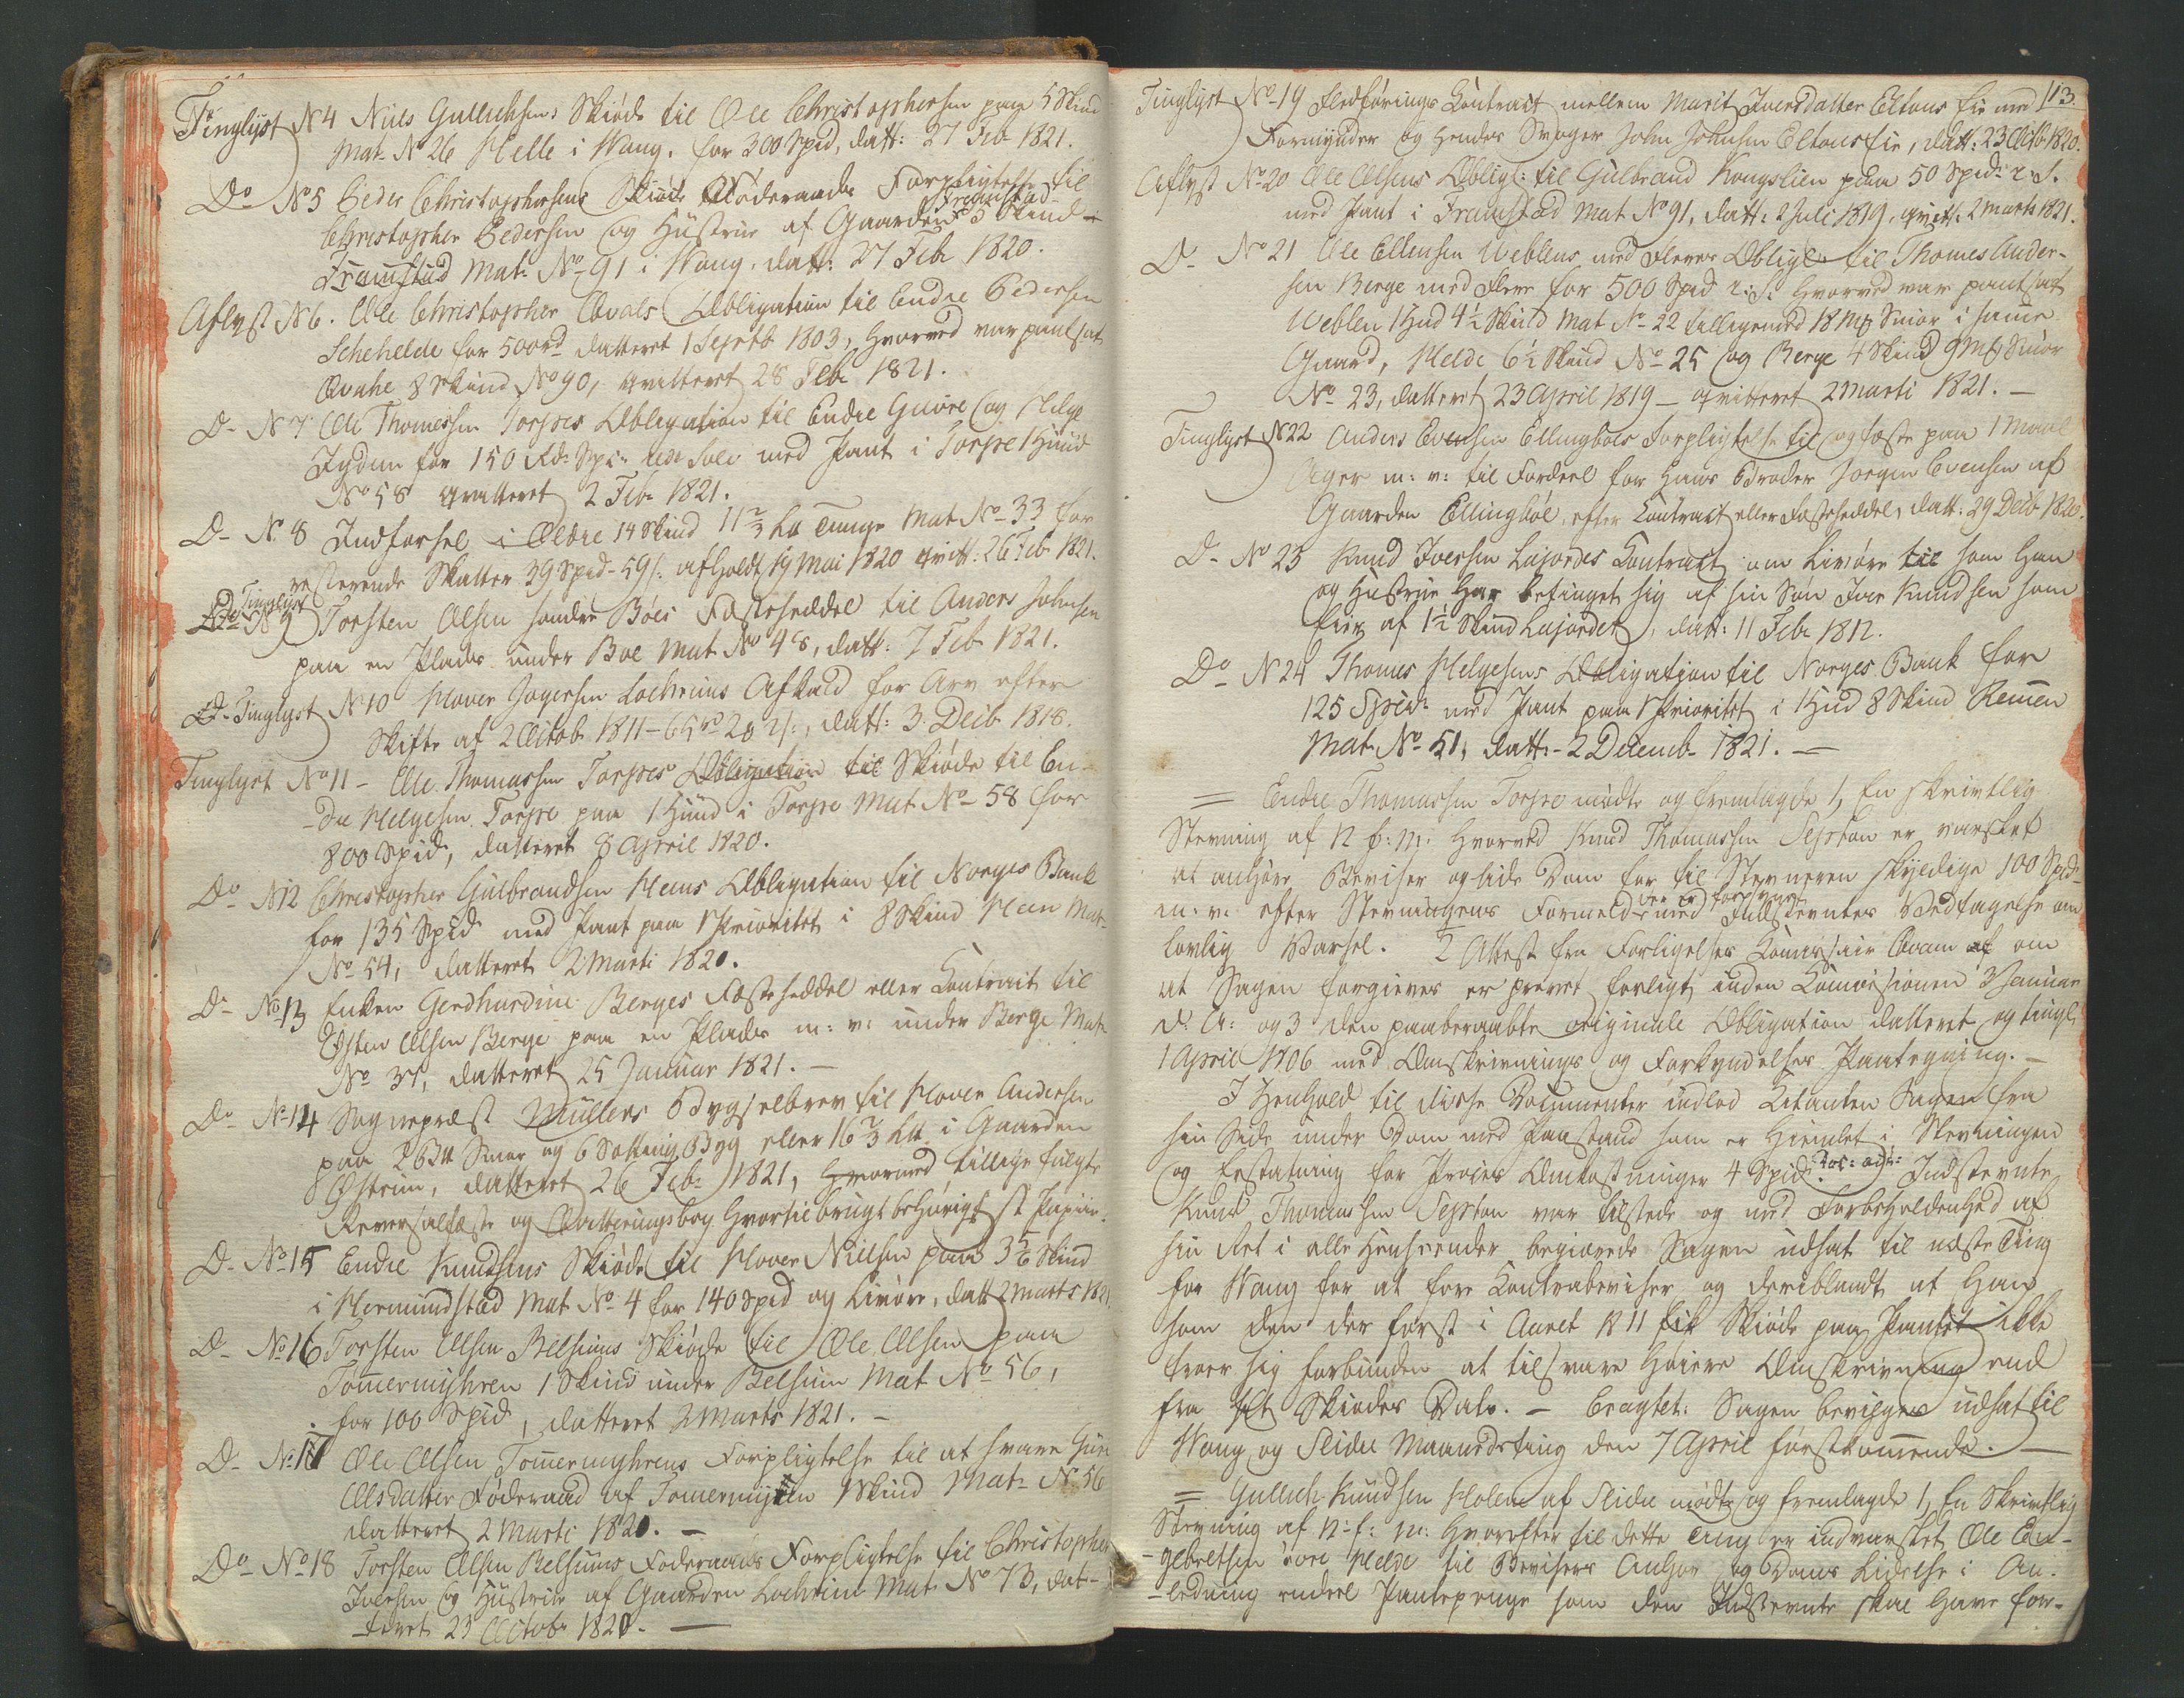 Tinglyst N 4 Niels Gullichsens Skiøde til Ole Christophersen paa 5 Skind
Mat: N 26 Helle i Wang. for 300 Spd, datt: 27 Feb 1821.
Do No 5 Peder Christophersens Føderaads Forpligtelse til
Christopher Pedersen og Hustrue af Gaarden Framstad 3 Skind
Framstad Mat: No 91 i Wang, datt: 27 Feb 1820.
Aflyst N 6. Ole Christopher Qvals Obligation til Endre Pedersen
Schehelde for 500 rd datteret 1 Septb 1803, hvorved var pantsat
Qvahe 8 Skind No 90, qvitteret 28 Feb 1821.
D- N 7 Ole Thomessen Torpes Obligation til Endre Gaure og Helge
Jydin for 150 Rd: Spe: rede Sølv med Pant i Torpe 1 Huud
No 58 qvitteret 2 Feb: 1821.
D- N. 8 Indførsel i Øldre 14 Skind 11 2/3 Lb Tunge Mat No 33 for
resterende Skatter 39 Spd - 59 s: afholdt 19 Mai 1820 qvitt: 26 Feb 1821.
Tinglyst
N 9 Torsten Olsen søndre Bøes Fæsteseddel til Anders Johnsen
paa en Plads under Boe Mat No 48, datt: 7 Feb 1821.
Tinglyst N 10 Hover Jogersen Lochrims Afkald for Arv efter
Skifte af 2 Octob 1811 - 65 rd 20 s:, datt: 3 Decb 1818.
Tinglyst No 11 - Ole Thomassen Torpes Obligation til Skiøde til En-
dre Helgesen Torpe paa 1 Huud i Torpe Mat No 58 for
800 Spd, datteret 8 April 1820.
Do N 12 Christopher Gulbrandsen Heens Obligation til Norges Bank
for 135 Spd med Pant paa 1 Prioritet i 8 Skind Heen Mat
No 54, datteret 2 Marti 1820.
Do No 13 Enken Gerdhardine Berges Fæsteseddel eller Contract til
Østen Olsen Berge paa en Plads m: v: under Berge Mat
No 37, datteret 25 Januar 1821. -
Do No 14 Sognepræst Müllers Bygselbrev til Hover Andersen
paa 2 Smør og 6 Sætting Byg eller 16 2/3 Lb i Gaarden
Østrim, datteret 26 Feb: 1821, hvormed tillige fulgte
Reversalfæste og Qvitteringsbog hvortil brugt behørigt st Papiir.
D- No 15 Endre Knudsens Skiøde til Hover Nielsen paa 3 5/6 Skind
i Hermundstad Mat No 4 for 140 Spd og Livøre, datt 2 Marts 1821.
D- No 16 Torsten Olsen Belsims Skiøde til Ole Olsen paa
Tommermyhren 1 Skind under Belsim Mat No 56,
for 100 Spd, datteret 2 Marts 1821. -
D- No 17 Ole Olsen Tommermyhrens Forpligtelse til at svare Guri
Olsdatter Føderaad af Tommermyren 1 Skind Mat- N 56
datteret 2 Marti 1820. -
Do No 18 Torsten Olsen Belsims Føderaads Forpligtelse til Christopher
Iversen og Hustrue af Gaarden Lochrim Mat No 73, dat-
teret 23 Octob 1820. -
113.
Tinglyst No 19 Fledførings Contract mellem Marit Iversdatter Eltons Eie med
Formynder og hendes Svoger John Johnsen Eltons eie, datt: 23 Octb 1820.
Aflyst No 20 Ole Olsens Obligt: til Gulbrand Kongslien paa 50 Spd: r. S.
med Pant i Framstad Mat No 91, datt: 2 Juli 1819, qvitt: 2 Marts 1821.
D- No 21 Ole Ellensen Weblens med Fleres Obligt til Thomes Ander-
sen Berge med Flere for 500 Spd r: S: hvorved var pantsat
Weblen 1 Hud 4 1/2 Skind Mat No 22 tilligemed 18 Mk Smør i samme
Gaard, Helde 6 1/2 Skind No 25 og Berge 4 Skind 9 Mk Smør
No 23, datteret 23 April 1819 - qvitteret 2 Marti 1821. -
Tinglyst N 22 Anders Evensen Ellingboes Forpligtelse til og fæste paa 1 Maal
Ager m: v: til Fordeel for hans Broder Jørgen Evensen af
Gaarden Ellingbøe, efter Contract eller Fæsteseddel, datt: 29 Decb 1820.
D- No 23 Knud Iversen Lajordes Contract om Livøre til som han
og Hustrue har betinget sig af sin Søn Iver Knudsen som
Eier af 1 1/2 Skind Lajordet, datt: 11 Feb: 1812.
Do N 24 Thomes Helgesens Obligation til Norges Bank for
125 Spd: med Pant paa 1 Prioritet i 1 Hud 8 Skind Remmen
Mat No 51, datt:- 2 Decemb- 1821. -
= Endre Thomassen Torpe mødte og fremlagde 1, En skrivtlig
Stevning af N f: M: hvorved Knud Thomassen Sepston er varslet
at anhøre Beviser og lide Dom for til Stevneren skyldige 100 Spd-
m: v: efter Stevningens Formeld- med Indstevntes Vedtagelse om
lovlig Varsel. 2 Attest fra Forligelses Comissair om
at Sagen forgieves er prøvet forligt inden Comissionen 3 Januar
d: A: og 3 den paaberaabte originale Obligation datteret og tingl
1 April 1806 med Omskrivnings og Forkyndelses Paategning. -
I Henhold til disse Documenter indlod Citanten Sagen fra
sin Side under Dom med Paastand som er hiemlet i Stevningen
og Erstatning for Proces Omkostninger 4 Spd: Indstevnte
Knud Thomassen Sepston var tilstede og med Forbeholdenhed af
sin Ret i alle Henseender begiærede Sagen udsat til næste Ting
for Wang for at føre Contrabeviser og deriblandt at han
som den der først i Aaret 1811 fik Skiøde paa Pantet ikke
troer sig forbunden at tilsvare høiere Omskrivning end
fra sit Skiødes Dato. - Eragtet: Sagen bevilges udsat til
Wang og Slidre Maanedsting den 7 April førstkommende. -
= Gullich Knudsen Holene af Slidre mødte og fremlagde 1, En Skrivtlig
Stevning af N: f: M: hvorefter til dette Ting er indvarslet Ole En-
gebretsen Helde til Bevisers Anhør og Doms Lidelse i An-
ledning endeel Pantepenge som den Indstevnte skal have for-